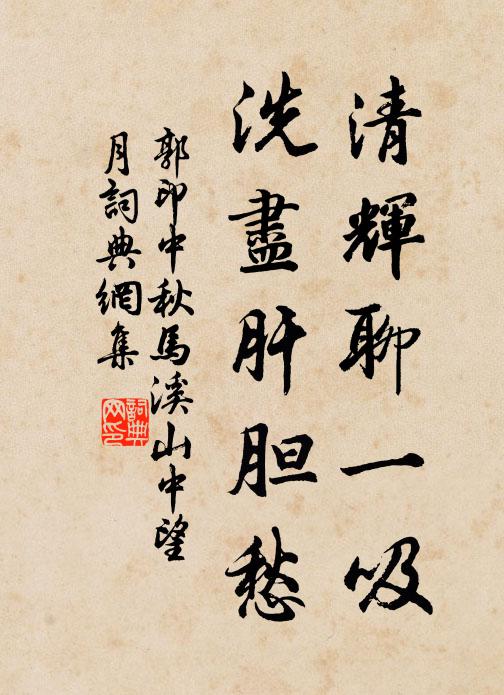 清輝聊一吸
洗盡肝胆愁
郭印中秋馬溪山中望
月詞典網集
詞典
网印